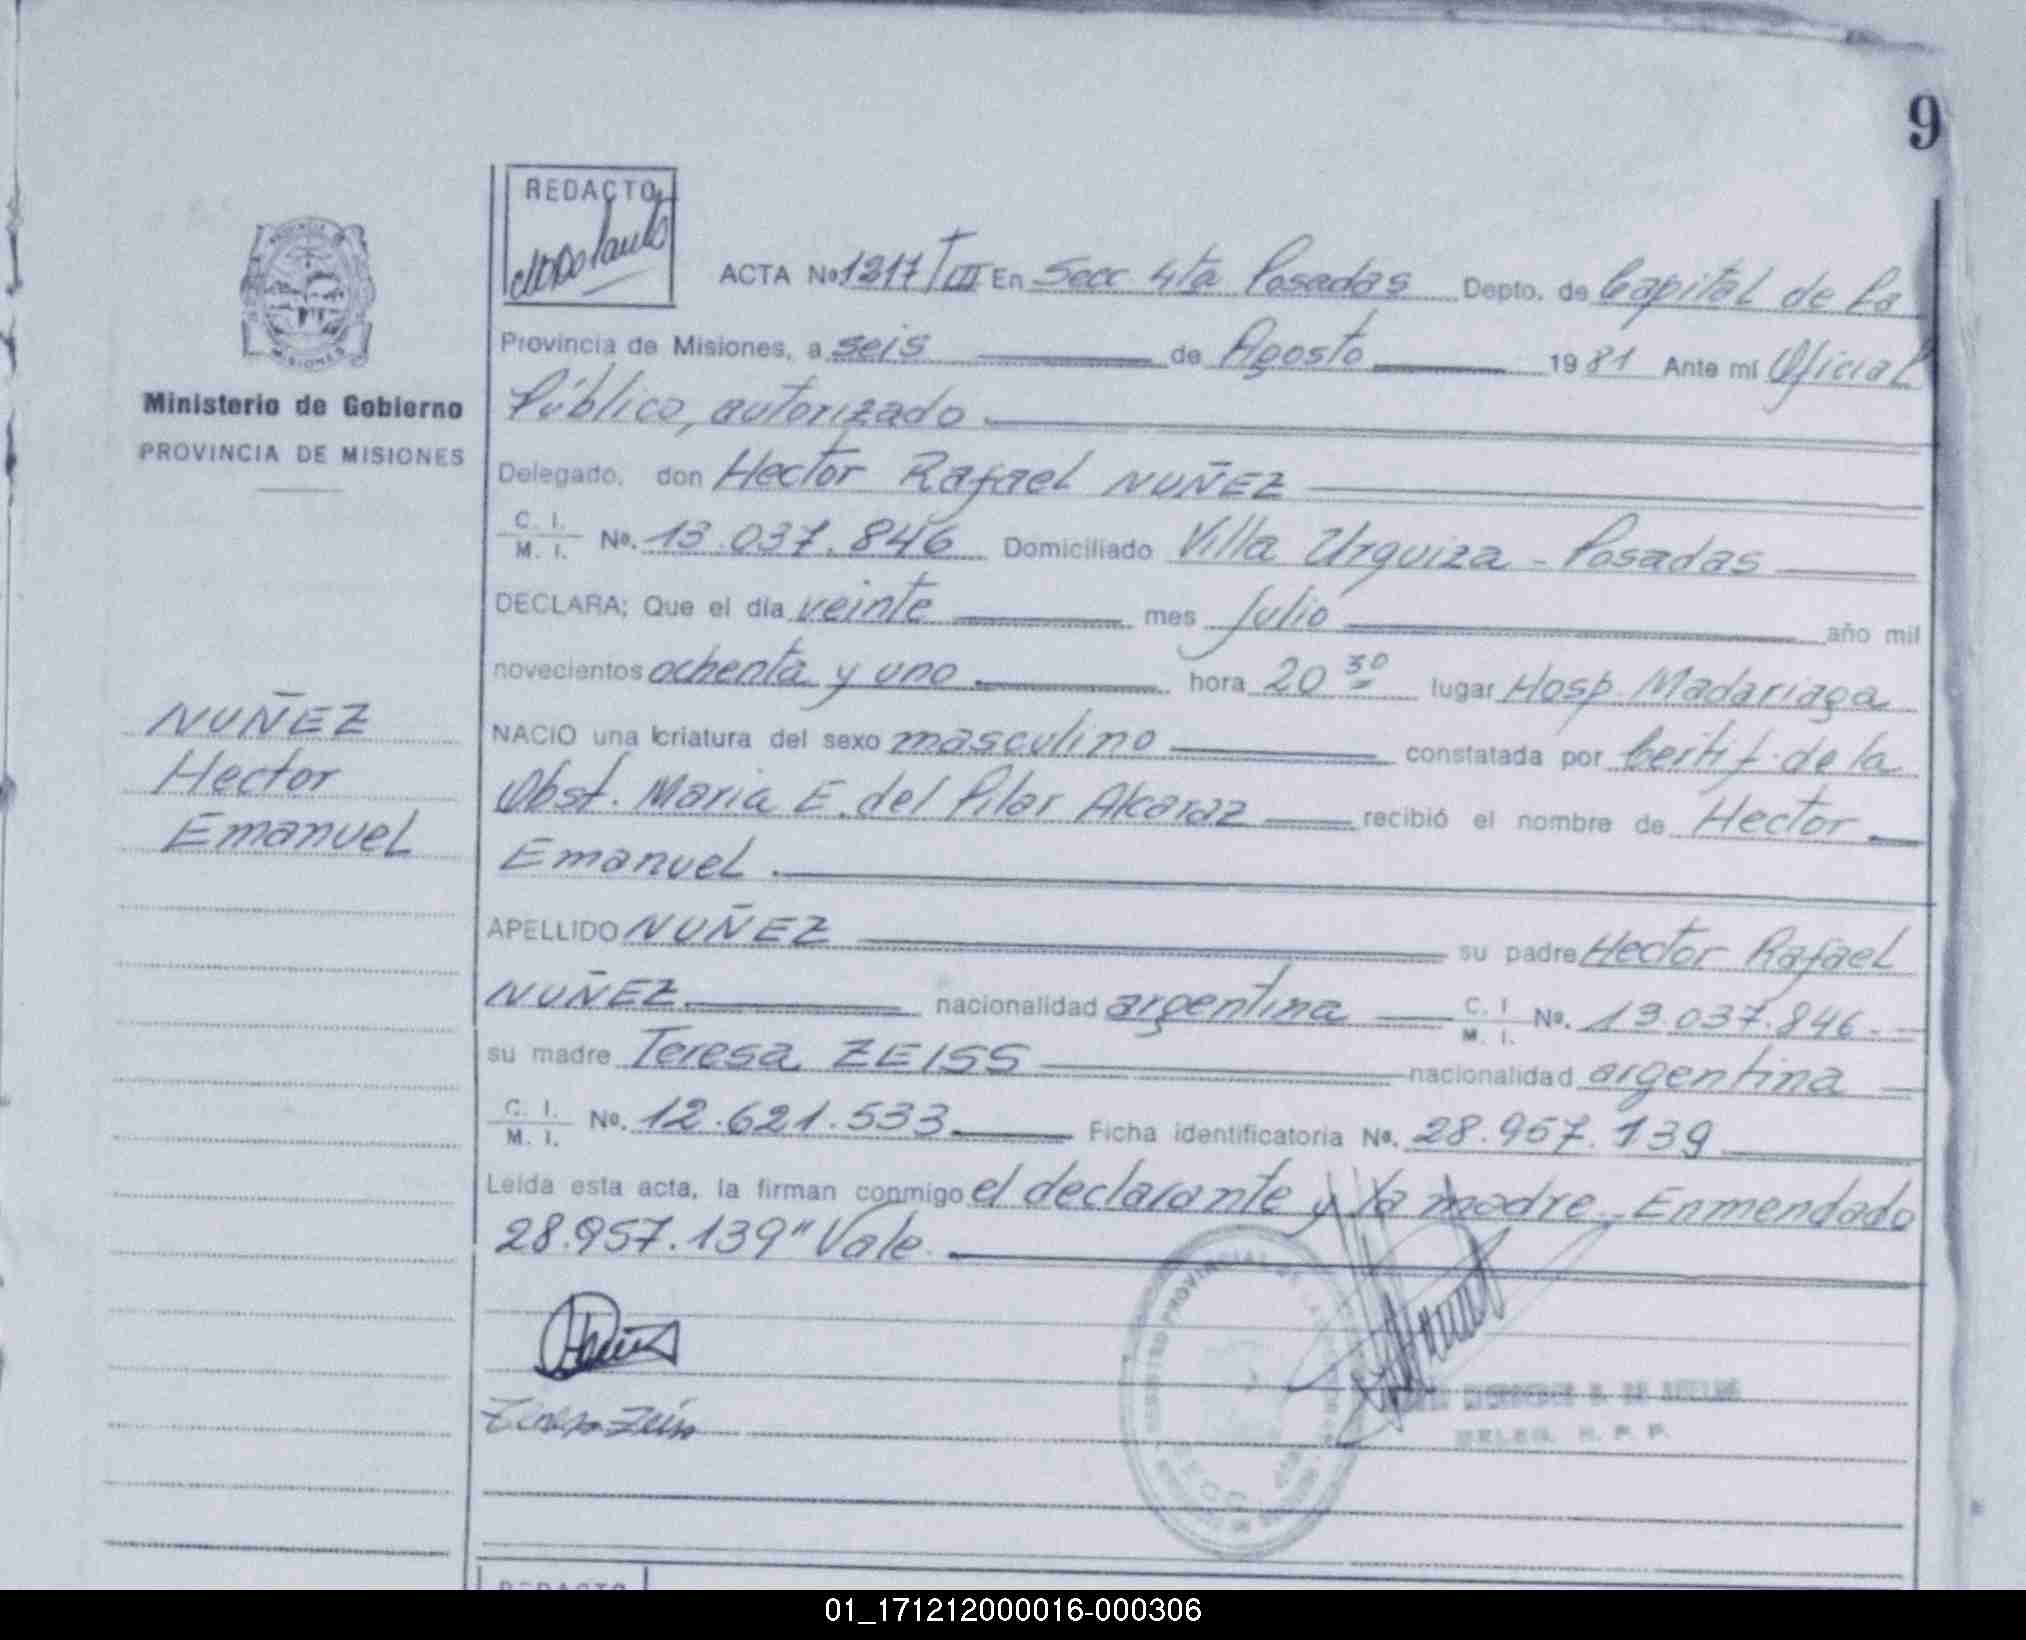 9
REDACTO
ACTA Nº 1217 T III En Secc 4ta Posadas Depto. de Capital de la
Provincia de Misiones, a seis de Agosto 1981 Ante mi Oficial
Público, autorizado
Ministerio de Gobierno
PROVINCIA DE MISIONES
Delegado, don Hector Rafael NUÑEZ
C. I. M. I. Nº. 13.037.846 Domiciliado Villa Urquiza - Posadas
DECLARA; Que el día veinte mes Julio año mil
novecientos ochenta y uno hora 20 30 lugar Hosp. Madariaga
NUÑEZ
Hector
Emanuel
NACIO una criatura del sexo masculino constatada por Certif. de la
Obst. Maria E. del Pilar Alcaraz recibió el nombre de Hector
Emanuel.
APELLIDO NUÑEZ su padre Hector Rafael
NUÑEZ nacionalidad argentina C. I. M. I. Nº. 13.037.846.
su madre Teresa ZEISS nacionalidad argentina
C. I. M. I. Nº. 12.621.533 Ficha identificatoria Nº. 28.957.139
Leída esta acta, la firman conmigo el declarante y la madre. Enmendado
28.957.139" Vale.
Teresa Zeiss
REGISTRO PROVINCIAL DE LAS
DELEG. R. P. P.
REDACTO
01_171212000016-000306